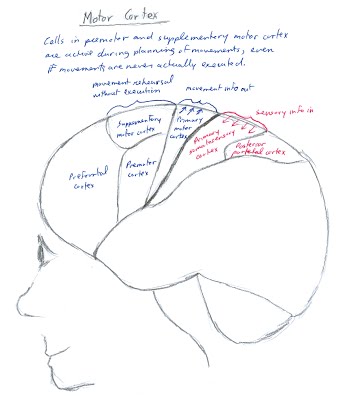 Motor Cortex
Cells in premotor and supplementary motor cortex
are active during planning of movements, even
if movements are never actually executed.
movement rehearsal
without execution
movement info out
sensory info in
Supplementary
motor cortex
Primary
motor
cortex
Primary
somatosensory
cortex
Posterior
parietal cortex
Prefrontal
cortex
Premotor
cortex